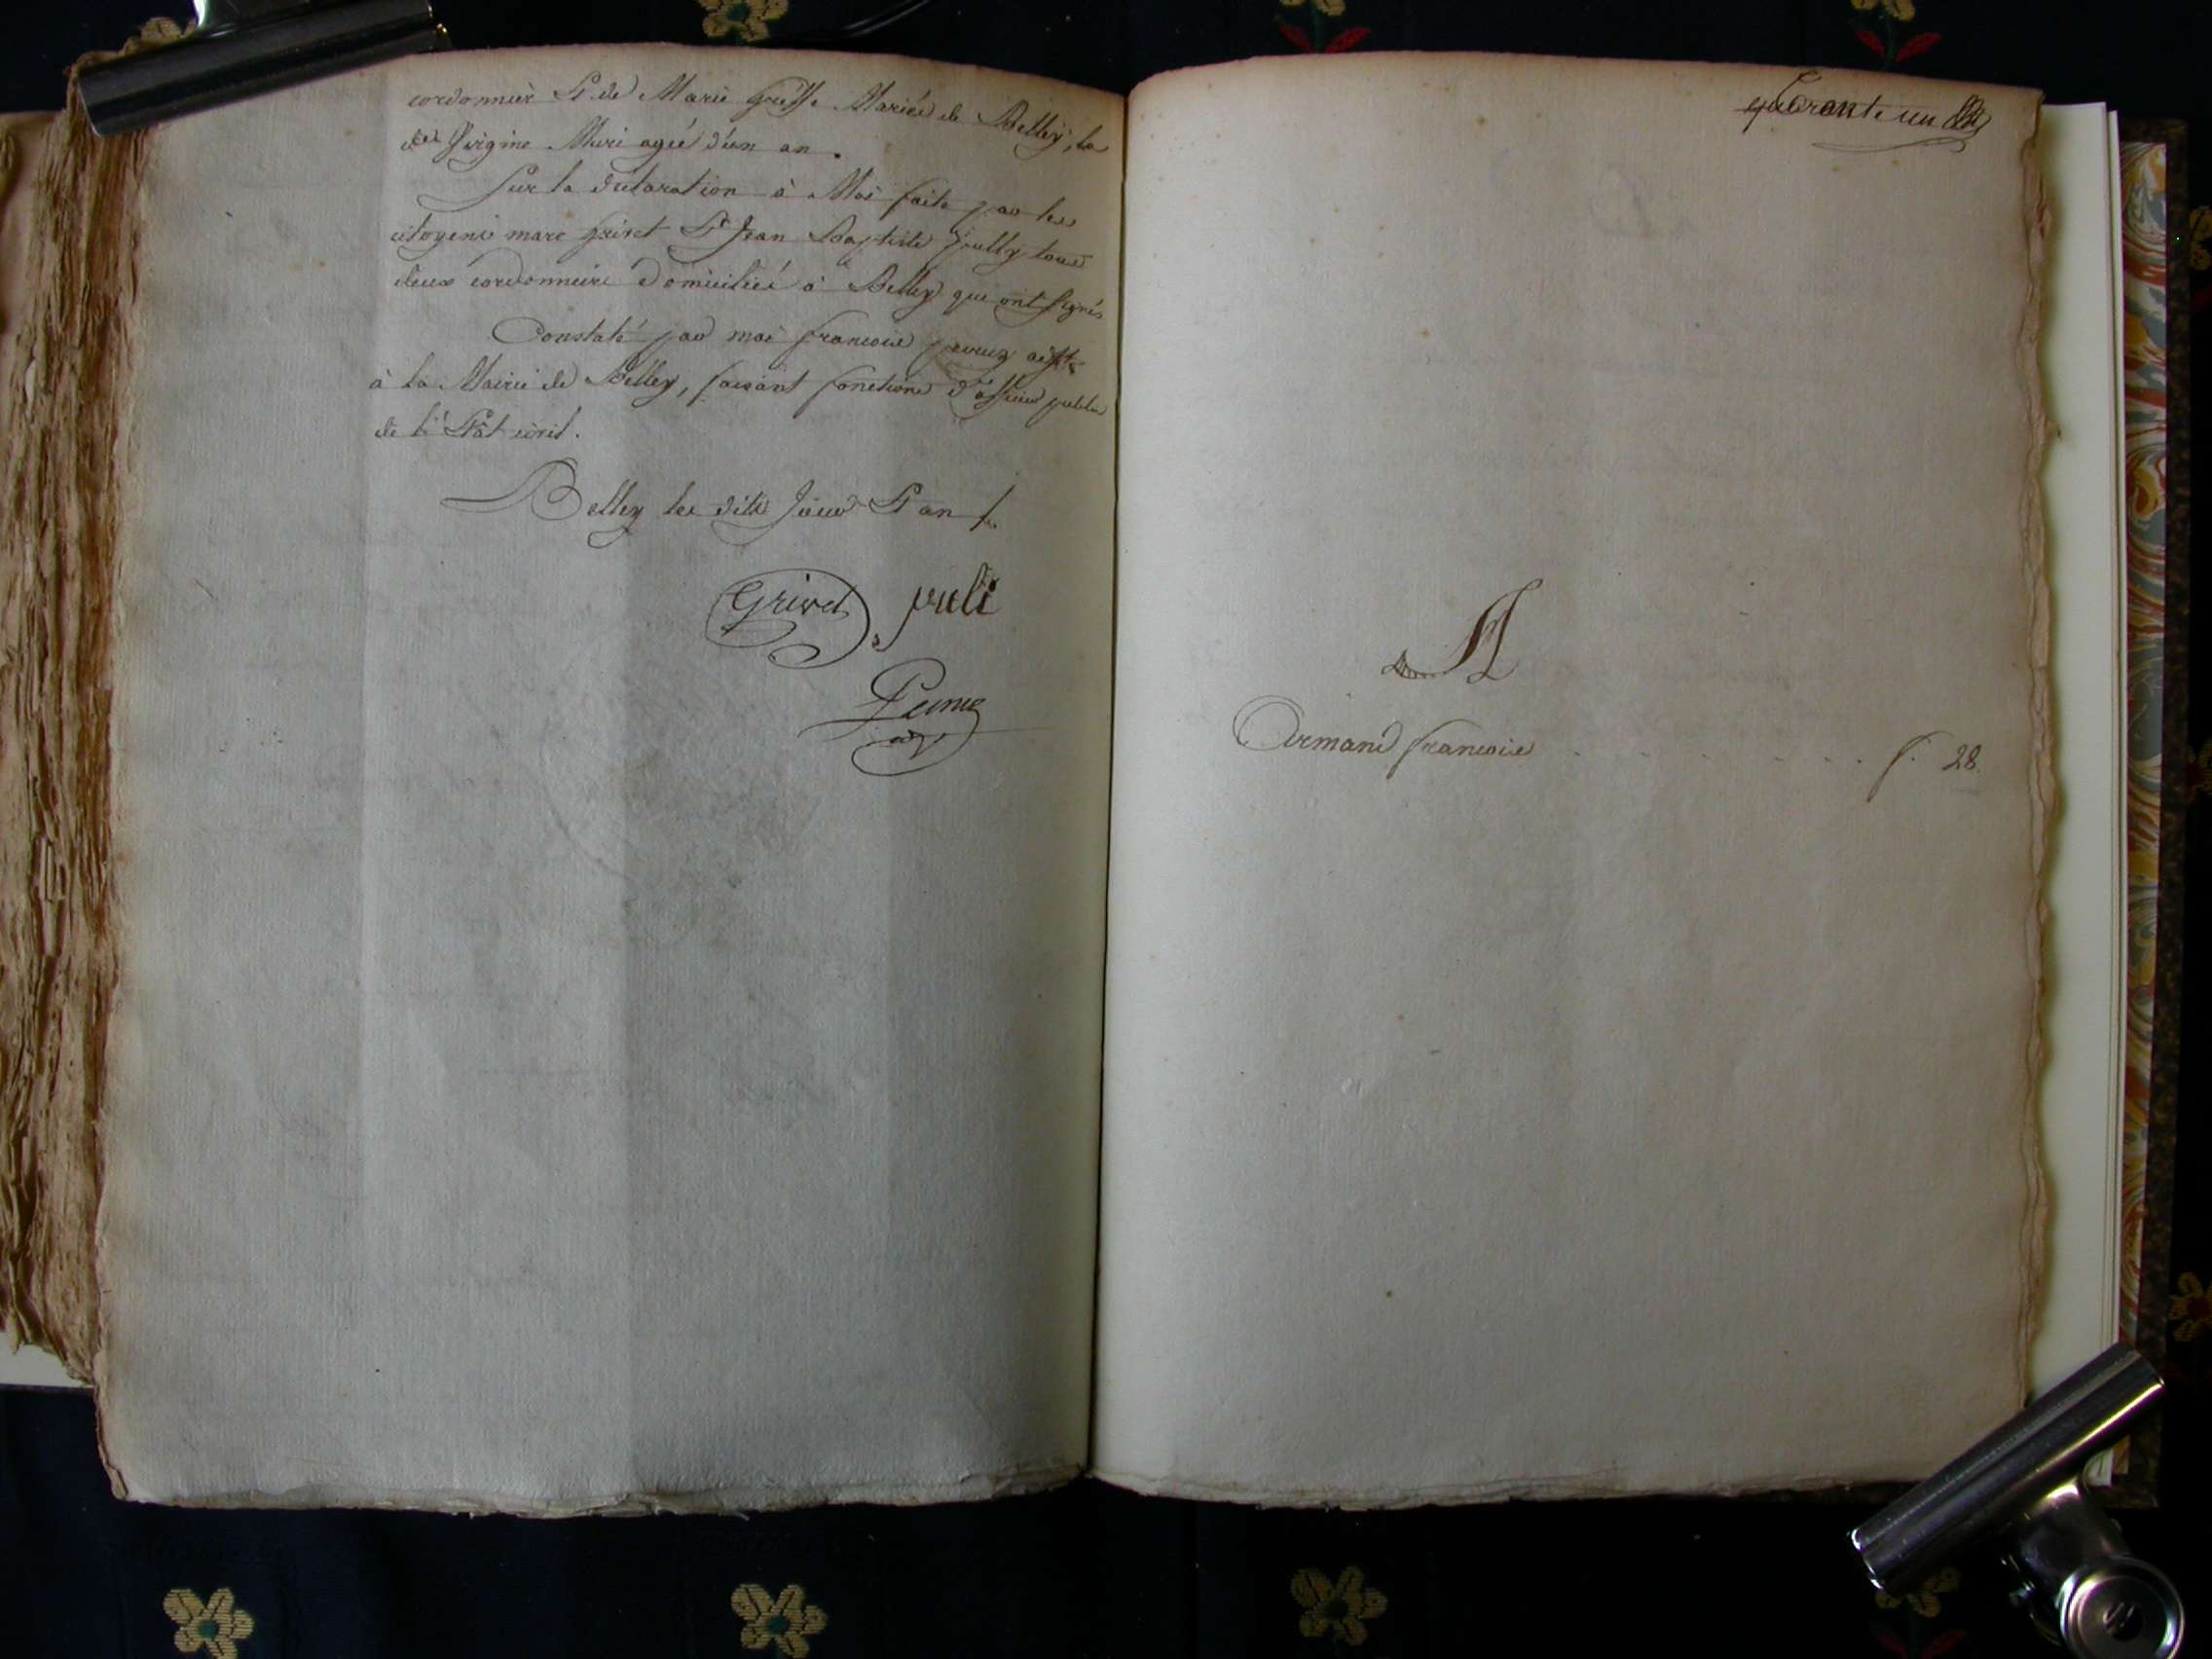 cordonnier Et de Marie Mariés de Belley, la
agée d'un an.
Sur la declaration à Moi faite par les
citoyens marc Grivet Et Jean Baptiste pully tous
deux cordonniers Domiciliés à Belley qui ont Signés
Constaté par moi francois
à la Mairie de Belley, faisant fonctions d'officier public
de l'Etat civil.
Belley les dits Jour Et an
Grivet puli
quarante un
A
Armand francois f. 28